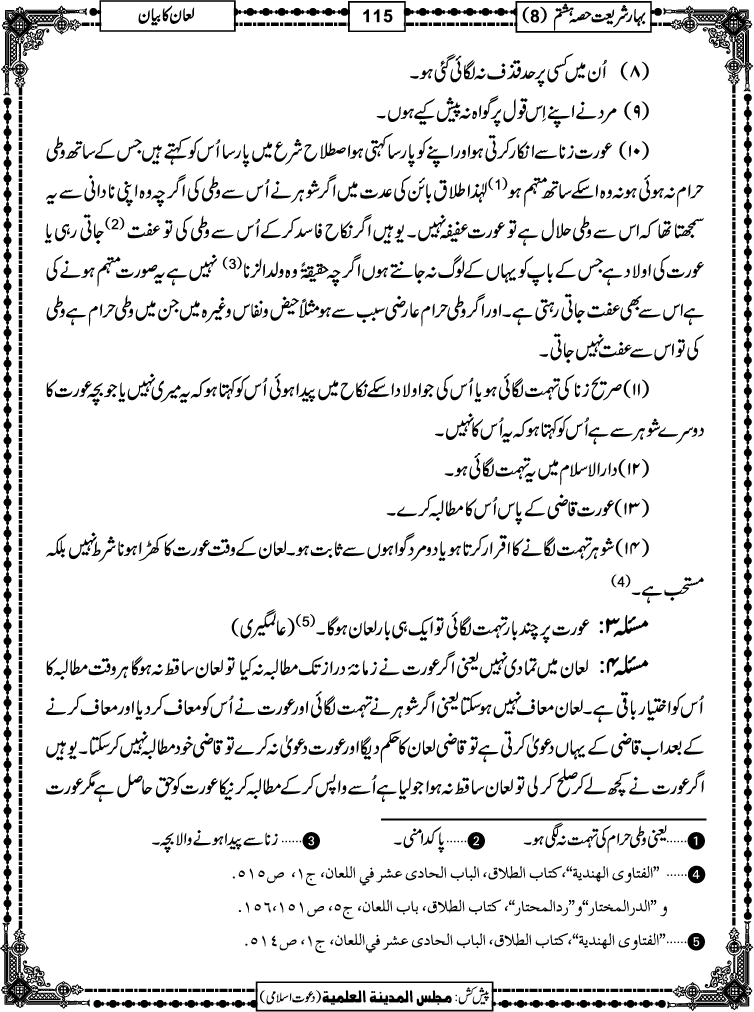 بہار شریعت حصہ ہشتم (8)
115
لعان کا بیان
(۸) اُن میں کسی پر حد قذف نہ لگائی گئی ہو۔
(۹) مرد نے اپنے اِس قول پر گواہ نہ پیش کیے ہوں۔
(۱۰) عورت زنا سے انکار کرتی ہو اور اپنے کو پارسا کہتی ہو اصطلاح شرع میں پارسا اُس کو کہتے ہیں جس کے ساتھ وطی
حرام نہ ہوئی ہو نہ وہ اسکے ساتھ متہم ہو(1) لہٰذا طلاق بائن کی عدت میں اگر شوہر نے اُس سے وطی کی اگرچہ وہ اپنی نادانی سے یہ
سمجھتا تھا کہ اس سے وطی حلال ہے تو عورت عفیفہ نہیں۔ یوہیں اگر نکاح فاسد کرکے اُس سے وطی کی تو عفت(2) جاتی رہی یا
عورت کی اولاد ہے جس کے باپ کو یہاں کے لوگ نہ جانتے ہوں اگرچہ حقیقۃً وہ ولد الزنا(3) نہیں ہے یہ صورت متہم ہونے کی
ہے اس سے بھی عفت جاتی رہتی ہے۔ اور اگر وطی حرام عارضی سبب سے ہو مثلاً حیض و نفاس وغیرہ میں جن میں وطی حرام ہے وطی
کی تو اس سے عفت نہیں جاتی۔
(۱۱) صریح زنا کی تہمت لگائی ہو یا اُس کی جو اولاد اسکے نکاح میں پیدا ہوئی اُس کو کہتا ہو کہ یہ میری نہیں یا جو بچہ عورت کا
دوسرے شوہر سے ہے اُس کو کہتا ہو کہ یہ اُس کا نہیں۔
(۱۲) دارالاسلام میں یہ تہمت لگائی ہو۔
(۱۳) عورت قاضی کے پاس اُس کا مطالبہ کرے۔
(۱۴) شوہر تہمت لگانے کا اقرار کرتا ہو یا دو مرد گواہوں سے ثابت ہو۔ لعان کے وقت عورت کا کھڑا ہونا شرط نہیں بلکہ
مستحب ہے۔(4)
مسئلہ ۳: عورت پر چند بار تہمت لگائی تو ایک ہی بار لعان ہوگا۔(5) (عالمگیری)
مسئلہ ۴: لعان میں تمادی نہیں یعنی اگر عورت نے زمانۂ دراز تک مطالبہ نہ کیا تو لعان ساقط نہ ہوگا ہر وقت مطالبہ کا
اُس کو اختیار باقی ہے۔ لعان معاف نہیں ہوسکتا یعنی اگر شوہر نے تہمت لگائی اور عورت نے اُس کو معاف کر دیا اور معاف کرنے
کے بعد اب قاضی کے یہاں دعویٰ کرتی ہے تو قاضی لعان کا حکم دیگا اور عورت دعویٰ نہ کرے تو قاضی خود مطالبہ نہیں کرسکتا۔ یوہیں
اگر عورت نے کچھ لے کر صلح کر لی تو لعان ساقط نہ ہوا جو لیا ہے اُسے واپس کرکے مطالبہ کرنیکا عورت کو حق حاصل ہے مگر عورت
1 ......یعنی وطی حرام کی تہمت نہ لگی ہو۔ 2 ......پاکدامنی۔ 3 ......زنا سے پیدا ہونے والا بچہ۔
4 ......"الفتاوی الهندية"،کتاب الطلاق، الباب الحادی عشر في اللعان، ج١، ص٥١٥.
و "الدرالمختار"و"ردالمحتار"، کتاب الطلاق، باب اللعان، ج٥، ص١٥١،١٥٦.
5 ......"الفتاوی الهندية"،کتاب الطلاق، الباب الحادی عشر في اللعان، ج١، ص٥١٤.
پیش کش: مجلس المدینة العلمیة (دعوت اسلامی)